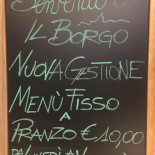 Benvenuti
IL BORGO
NUOVA GESTIONE
MENÙ FISSO
A
PRANZO €10,00
DAL LUNEDÌ AL